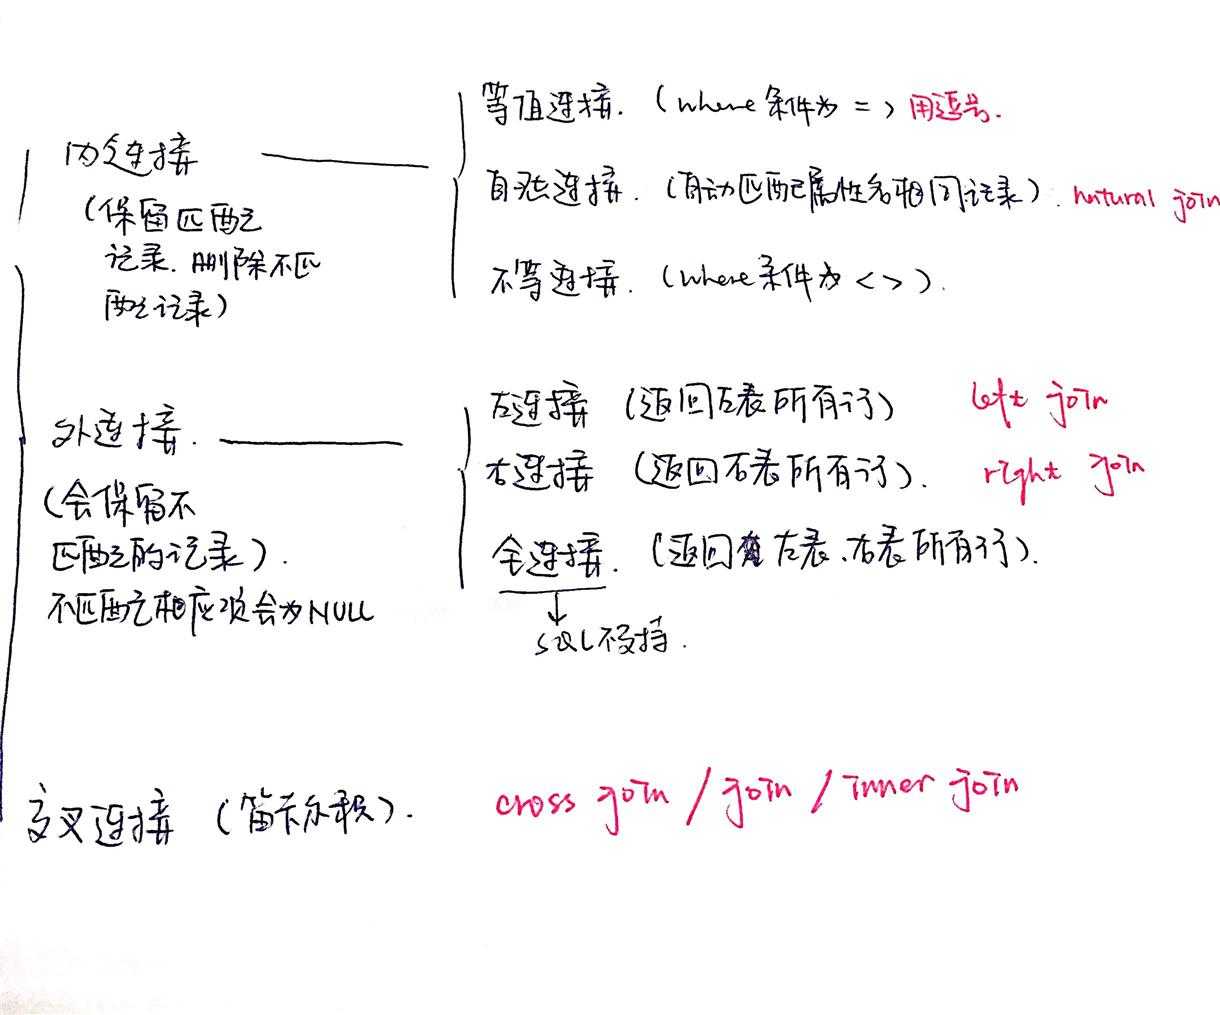 等值连接. (where条件为 = ) 用逗号.
内连接
自然连接. (自动匹配属性名相同记录). natural join
(保留匹配
记录. 删除不匹
配记录)
不等连接. (where条件为 < > ).
左连接 (返回左表所有行) left join
外连接.
右连接 (返回右表所有行). right join
(会保留不
匹配的记录).
全连接. (返回 左表、右表所有行).
不匹配相应项会为NULL
SQL不支持.
交叉连接 (笛卡尔积). cross join / join / inner join